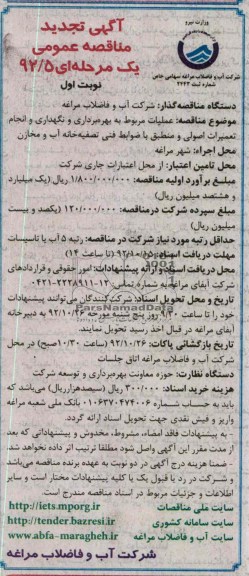 وزارت نیرو
شرکت آب و فاضلاب مراغه سهامی خاص
شماره ثبت ۲۲۲۳
آگهی تجدید
مناقصه عمومی
یک مرحله‌ای ۹۲/۵
نوبت اول
دستگاه مناقصه‌گذار: شرکت آب و فاضلاب مراغه
موضوع مناقصه: عملیات مربوط به بهره‌برداری و نگهداری و انجام
تعمیرات اصولی و منطبق با ضوابط فنی تصفیه‌خانه آب و مخازن
محل اجراء: شهر مراغه
محل تامین اعتبار: از محل اعتبارات جاری شرکت
مبلغ برآورد اولیه مناقصه: ۱/۸۰۰/۰۰۰/۰۰۰ ریال (یک میلیارد
و هشتصد میلیون ریال)
مبلغ سپرده شرکت درمناقصه: ۱۲۰/۰۰۰/۰۰۰ (یکصد و بیست
میلیون ریال)
حداقل رتبه مورد نیاز شرکت در مناقصه: رتبه ۵ آب یا تاسیسات
مهلت دریافت اسناد: ۹۲/۱۰/۱۵ (تا ساعت ۱۴)
محل دریافت اسناد و ارائه پیشنهادات: امور حقوقی و قراردادهای
شرکت آبفای مراغه به شماره تماس: ۱۲-۲۲۲۸۹۱۱-۰۴۲۱
تاریخ و محل تحویل اسناد: شرکت‌کنندگان می‌توانند پیشنهادات
خود را تا ساعت ۹/۳۰ روز پنج شنبه مورخه ۹۲/۱۰/۲۶ به دبیرخانه
آبفای مراغه در قبال اخذ رسید تحویل نمایند.
تاریخ بازگشائی پاکات: ۹۲/۱۰/۲۶ (ساعت ۱۰/۳۰صبح) در محل
شرکت آب و فاضلاب مراغه اتاق جلسات
دستگاه نظارت: حوزه معاونت بهره‌برداری و توسعه شرکت
هزینه خرید اسناد: ۳۰۰/۰۰۰ ریال (سیصدهزارریال) می‌باشد که
باید به حساب شماره ۰۱۰۶۳۷۰۴۷۴۰۰۶ بانک ملی شعبه مراغه
واریز و فیش نقدی جهت تحویل اسناد ارائه گردد.
- به پیشنهادات فاقد امضاء، مشروط، مخدوش و پیشنهاداتی که بعد
از مدت مقرر این آگهی واصل شود مطلقا ترتیب اثر داده نخواهد شد.
- ضمنا هزینه درج آگهی در دو نوبت به عهده برنده مناقصه می‌باشد
و شرکت در رد یا قبول یک یا کلیه پیشنهادات مختار است و سایر
اطلاعات و جزئیات مربوط در اسناد مناقصه مندرج است.
سایت ملی مناقصات http://iets.mporg.ir
سایت سامانه کشوری http://tender.bazresi.ir
سایت آب و فاضلاب مراغه www.abfa-maragheh.ir
شرکت آب و فاضلاب مراغه